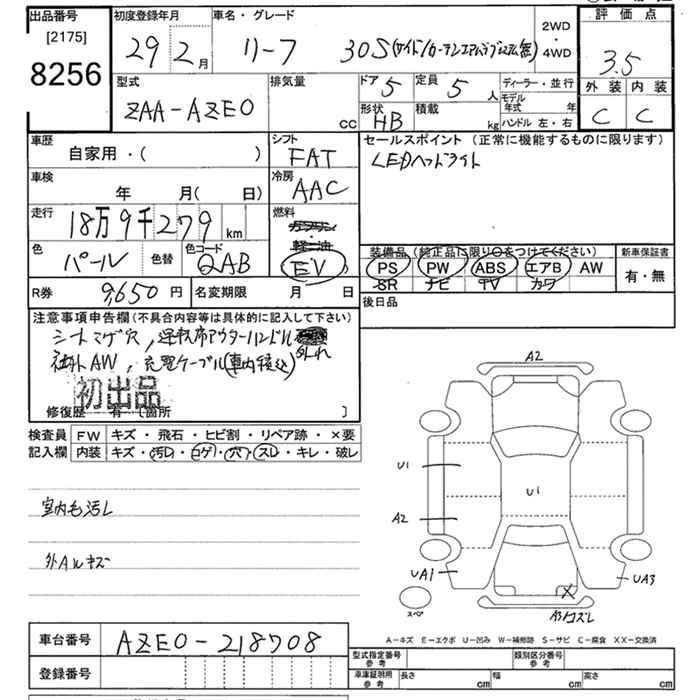 出品番号
[2175]
8256
初度登録年月
29 2月
車名・グレード
リーフ 30S
2WD
・
4WD
評価点
3.5
外装 内装
C C
型式
ZAA-AZE0
排気量
CC
ドア 5
定員 5人
形状 HB
積載 kg
ディーラー・並行
モデル年式 年
ハンドル 左・右
車歴
自家用・( )
シフト
FAT
セールスポイント (正常に機能するものに限ります)
LEDヘッドライト
車検
年 月( 日)
冷房
AAC
走行
18万9千279km
燃料
ガソリン
・
軽油
EV
色
パール
色替
色コード
QAB
装備品 (純正品に限り〇をつけてください)
PS PW ABS エアB AW
SR ナビ TV カワ
新車保証書
有・無
R券 9,650円
名変期限 月 日
後日品
注意事項申告欄(不具合内容等は具体的に記入して下さい)
シートコゲ穴, 運転席アウターハンドル
社外AW, 充電ケーブル(車内積込)
初出品
修復歴 有 〔箇所 〕
検査員 FW キズ・飛石・ヒビ割・リペア跡・×要
記入欄 内装 キズ・汚レ・コゲ・穴・スレ・キレ・破レ
室内モ汚レ
外Aルキズ
A2
U1
U1
A2
UA1
UA3
スペ
A3コスレ
A-キズ E-エクボ U-凹み W-補修跡 S-サビ C-腐食 XX-交換済
車台番号 AZE0-218708
登録番号
型式指定番号
参考
類別区分番号
参考
車庫証明用
参考
長さ cm
幅 cm
高さ cm